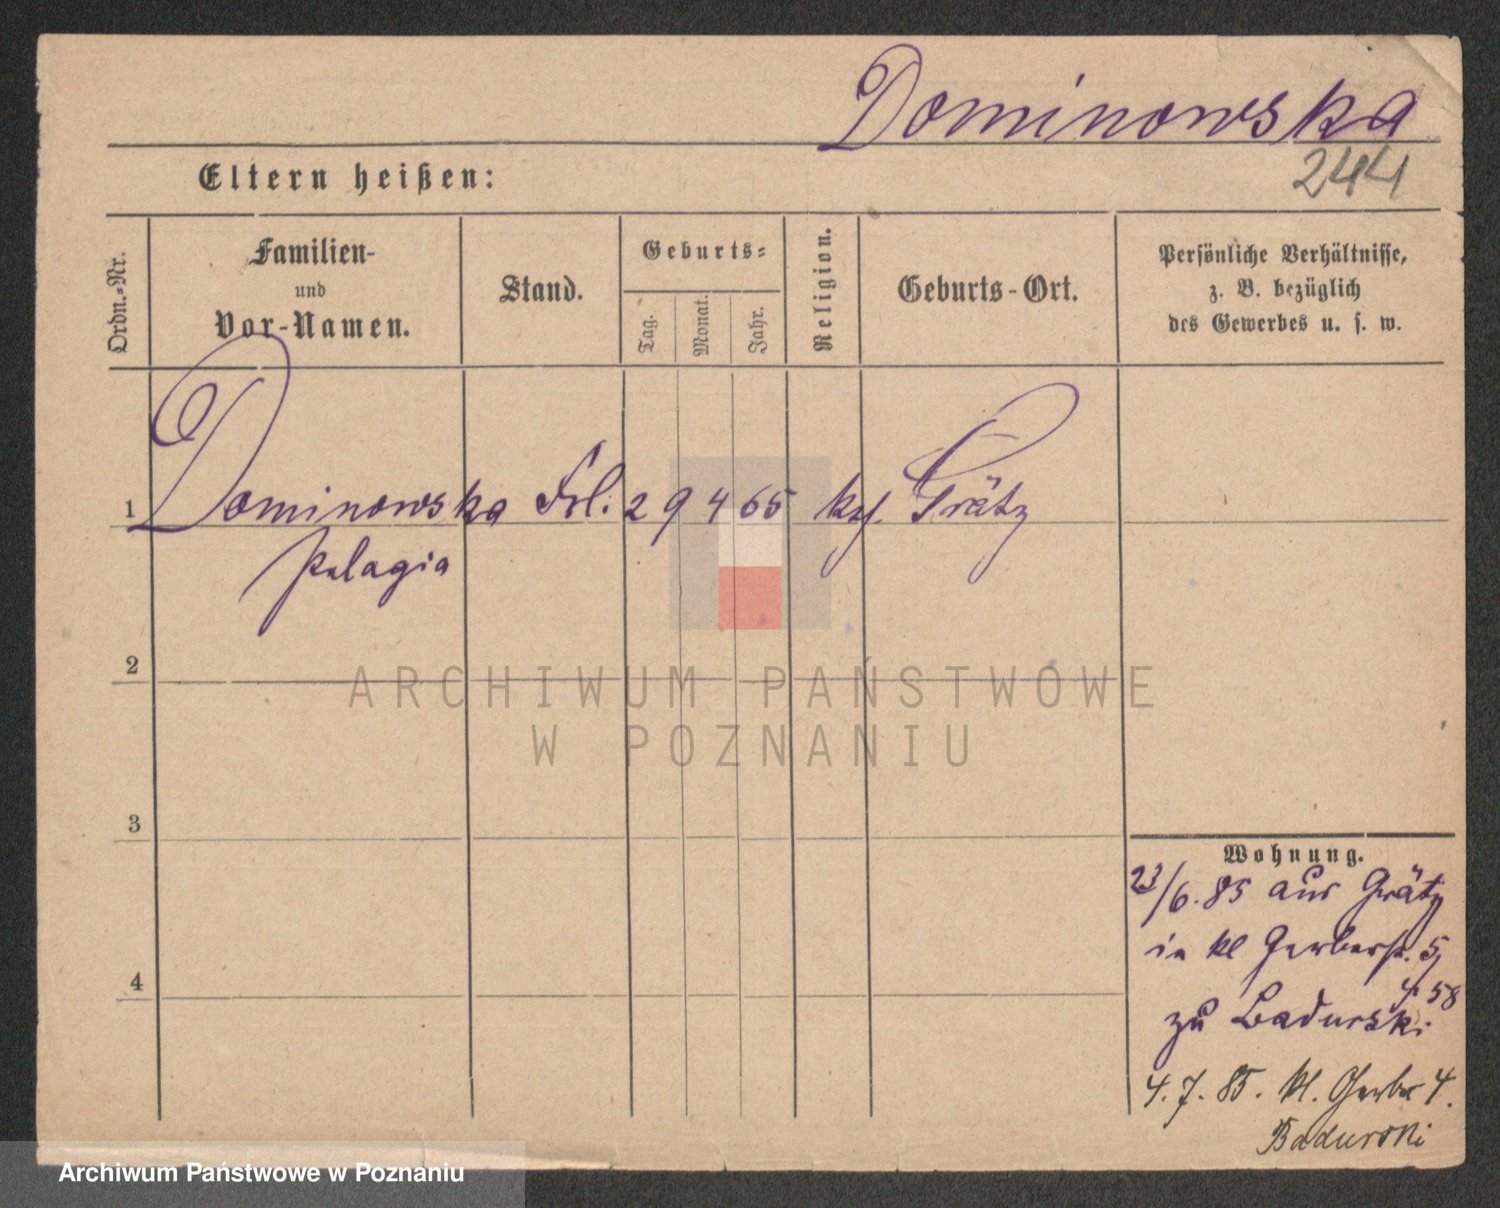 Dominowska
244
Eltern heißen:
Ordn.-Nr.
Familien-
und
Vor-Namen.
Stand.
Geburts-
Tag.
Monat.
Jahr.
Religion.
Geburts-Ort.
Persönliche Verhältnisse,
z. B. bezüglich
des Gewerbes u. s. w.
1 Dominowska Frl. 29 4 65 kath. Grätz
Pelagia
2
3
4
Wohnung.
23/6.85 aus Grätz
in kl Gerberstr. 5
58
zu Badurski
4.7.85. kl. Gerber 4.
Badurski
ARCHIWUM PAŃSTWOWE
W POZNANIU
Archiwum Państwowe w Poznaniu